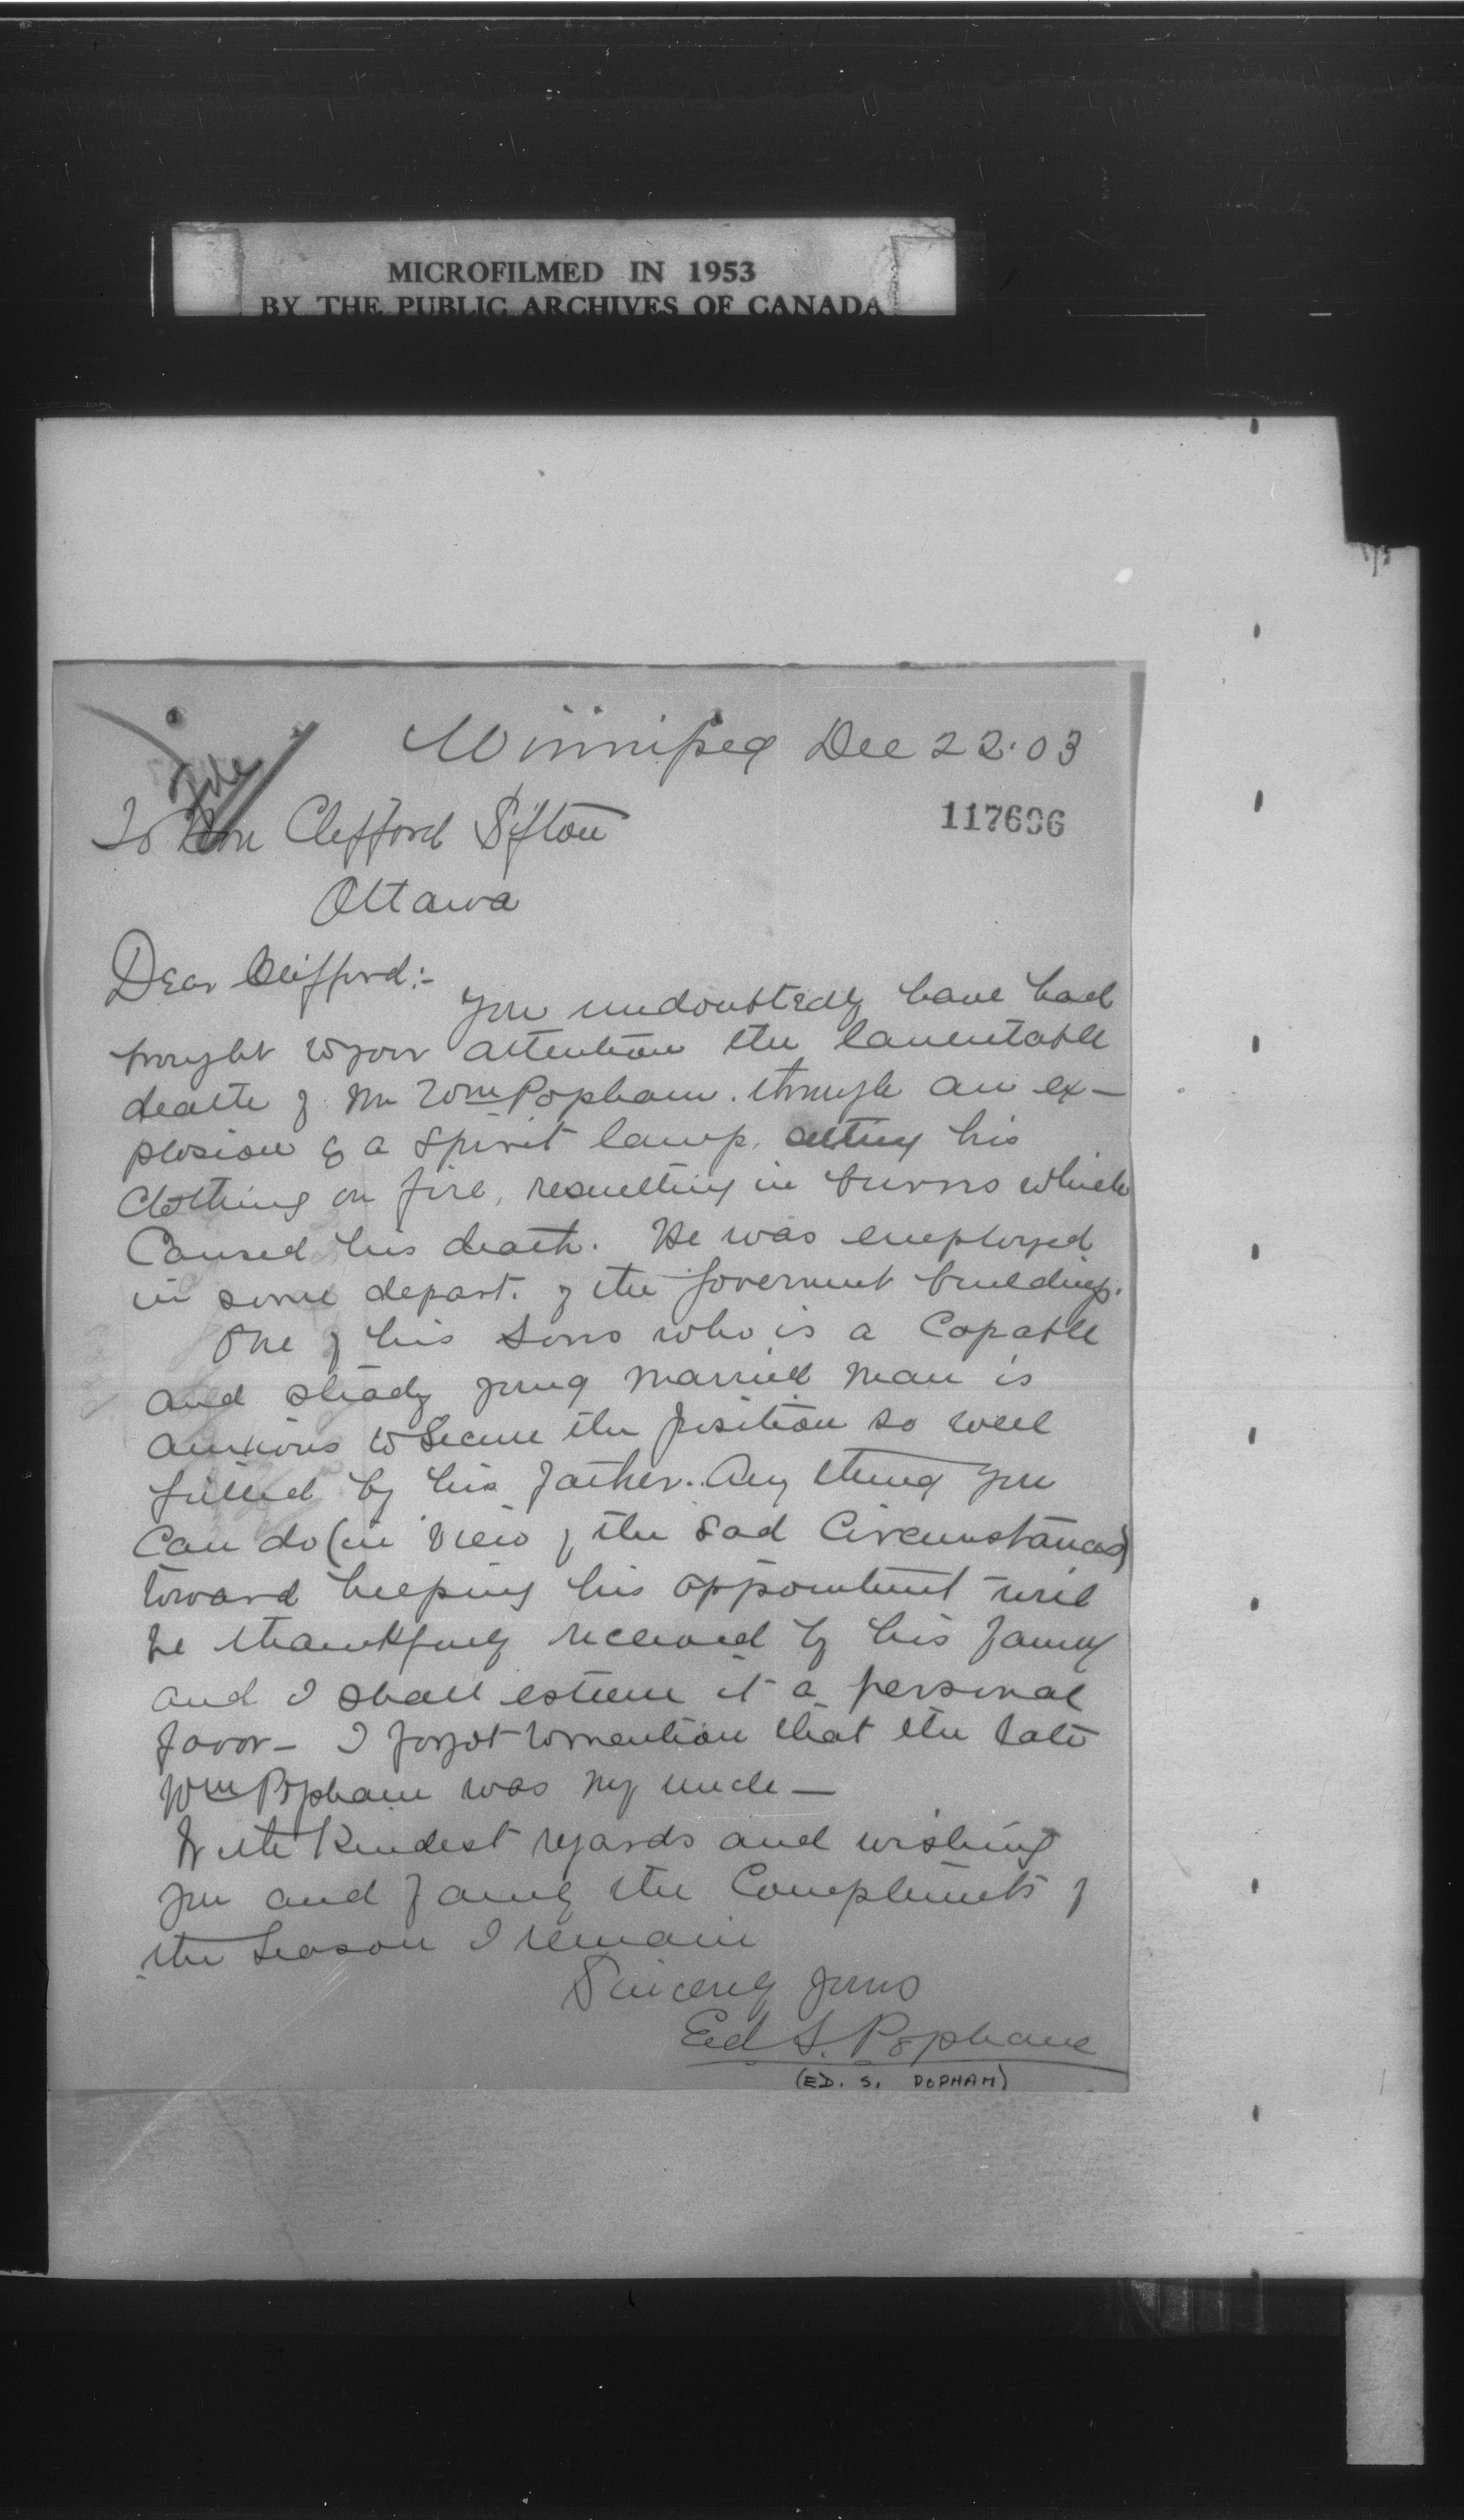 MICROFILMED IN 1953
BY THE PUBLIC ARCHIVES OF CANADA
Winnipeg Dec 22. 03
File
To Hon Clifford Sifton
117696
Ottawa
Dear Clifford:-
You undoubtedly have had
brought to your attention the lamentable
death of Mr Wm Popham. through an ex-
plosion of a spirit lamp, setting his
clothing on fire, resulting in burns which
caused his death. He was employed
in some depart. of the Goverment buildings.
One of his sons who is a capable
and steady young married man is
anxious to secure the position so well
filled by his father. Any thing you
can do (in view of the sad circumstances)
toward helping his appointment will
be thankfully received by his family
and I shall esteem it a personal
favor - I forgot to mention that the late
Wm Popham was my uncle -
With Kindest regards and wishing
you and family the Compliments of
the Season I remain
Sincerely yours
Ed S. Popham
(ED. S. POPHAM)